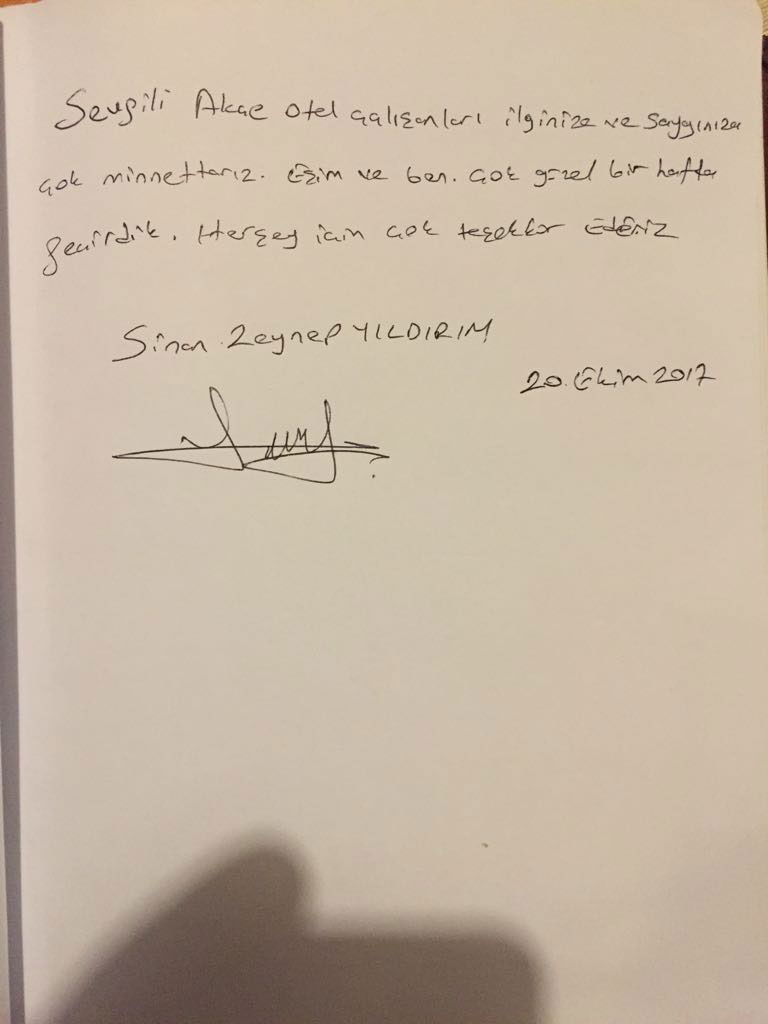 Sevgili Akae otel çalışanları ilginize ve saygınıza
çok minnettarız. Eşim ve ben. çok güzel bir hafta
geçirdik. Herşey için çok teşekkür Ederiz
Sinan Zeynep YILDIRIM
20. Ekim 2017